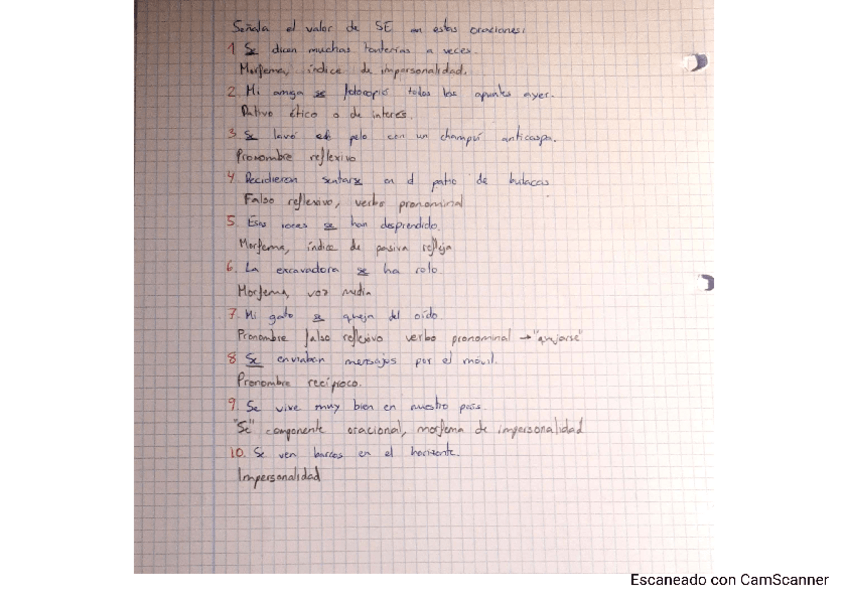 Señala el valor de SE en estas oraciones:
1 Se dicen muchas tonterías a veces.
Morfema, índice de impersonalidad.
2. Mi amiga se fotocopió todos los apuntes ayer.
Dativo ético o de interés.
3. Se lavó el pelo con un champú anticaspa.
Pronombre reflexivo
4. Decidieron sentarse en el patio de butacas
Falso reflexivo, verbo pronominal
5. Esas rocas se han desprendido.
Morfema, índice de pasiva refleja
6. La excavadora se ha roto.
Morfema, voz media
7. Mi gato se queja del oído
Pronombre falso reflexivo verbo pronominal → "quejarse"
8 Se enviaban mensajes por el móvil.
Pronombre recíproco.
9. Se vive muy bien en nuestro país.
"Se" componente oracional, morfema de impersonalidad
10. Se ven barcos en el horizonte.
Impersonalidad
Escaneado con CamScanner